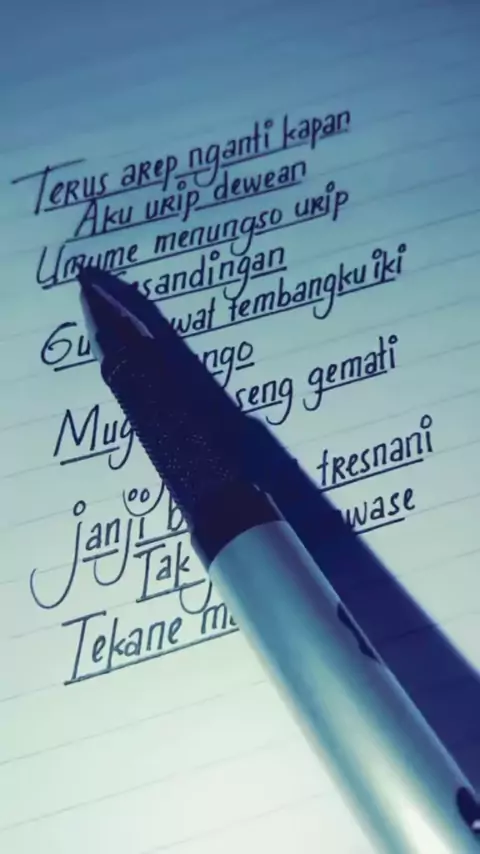 Terus arep nganti kapan
Aku urip dewean
Umume menungso urip
sandingan
wat tembangku iki
ngo
seng gemati
tresnani
janji
wase
Tak
Tekane